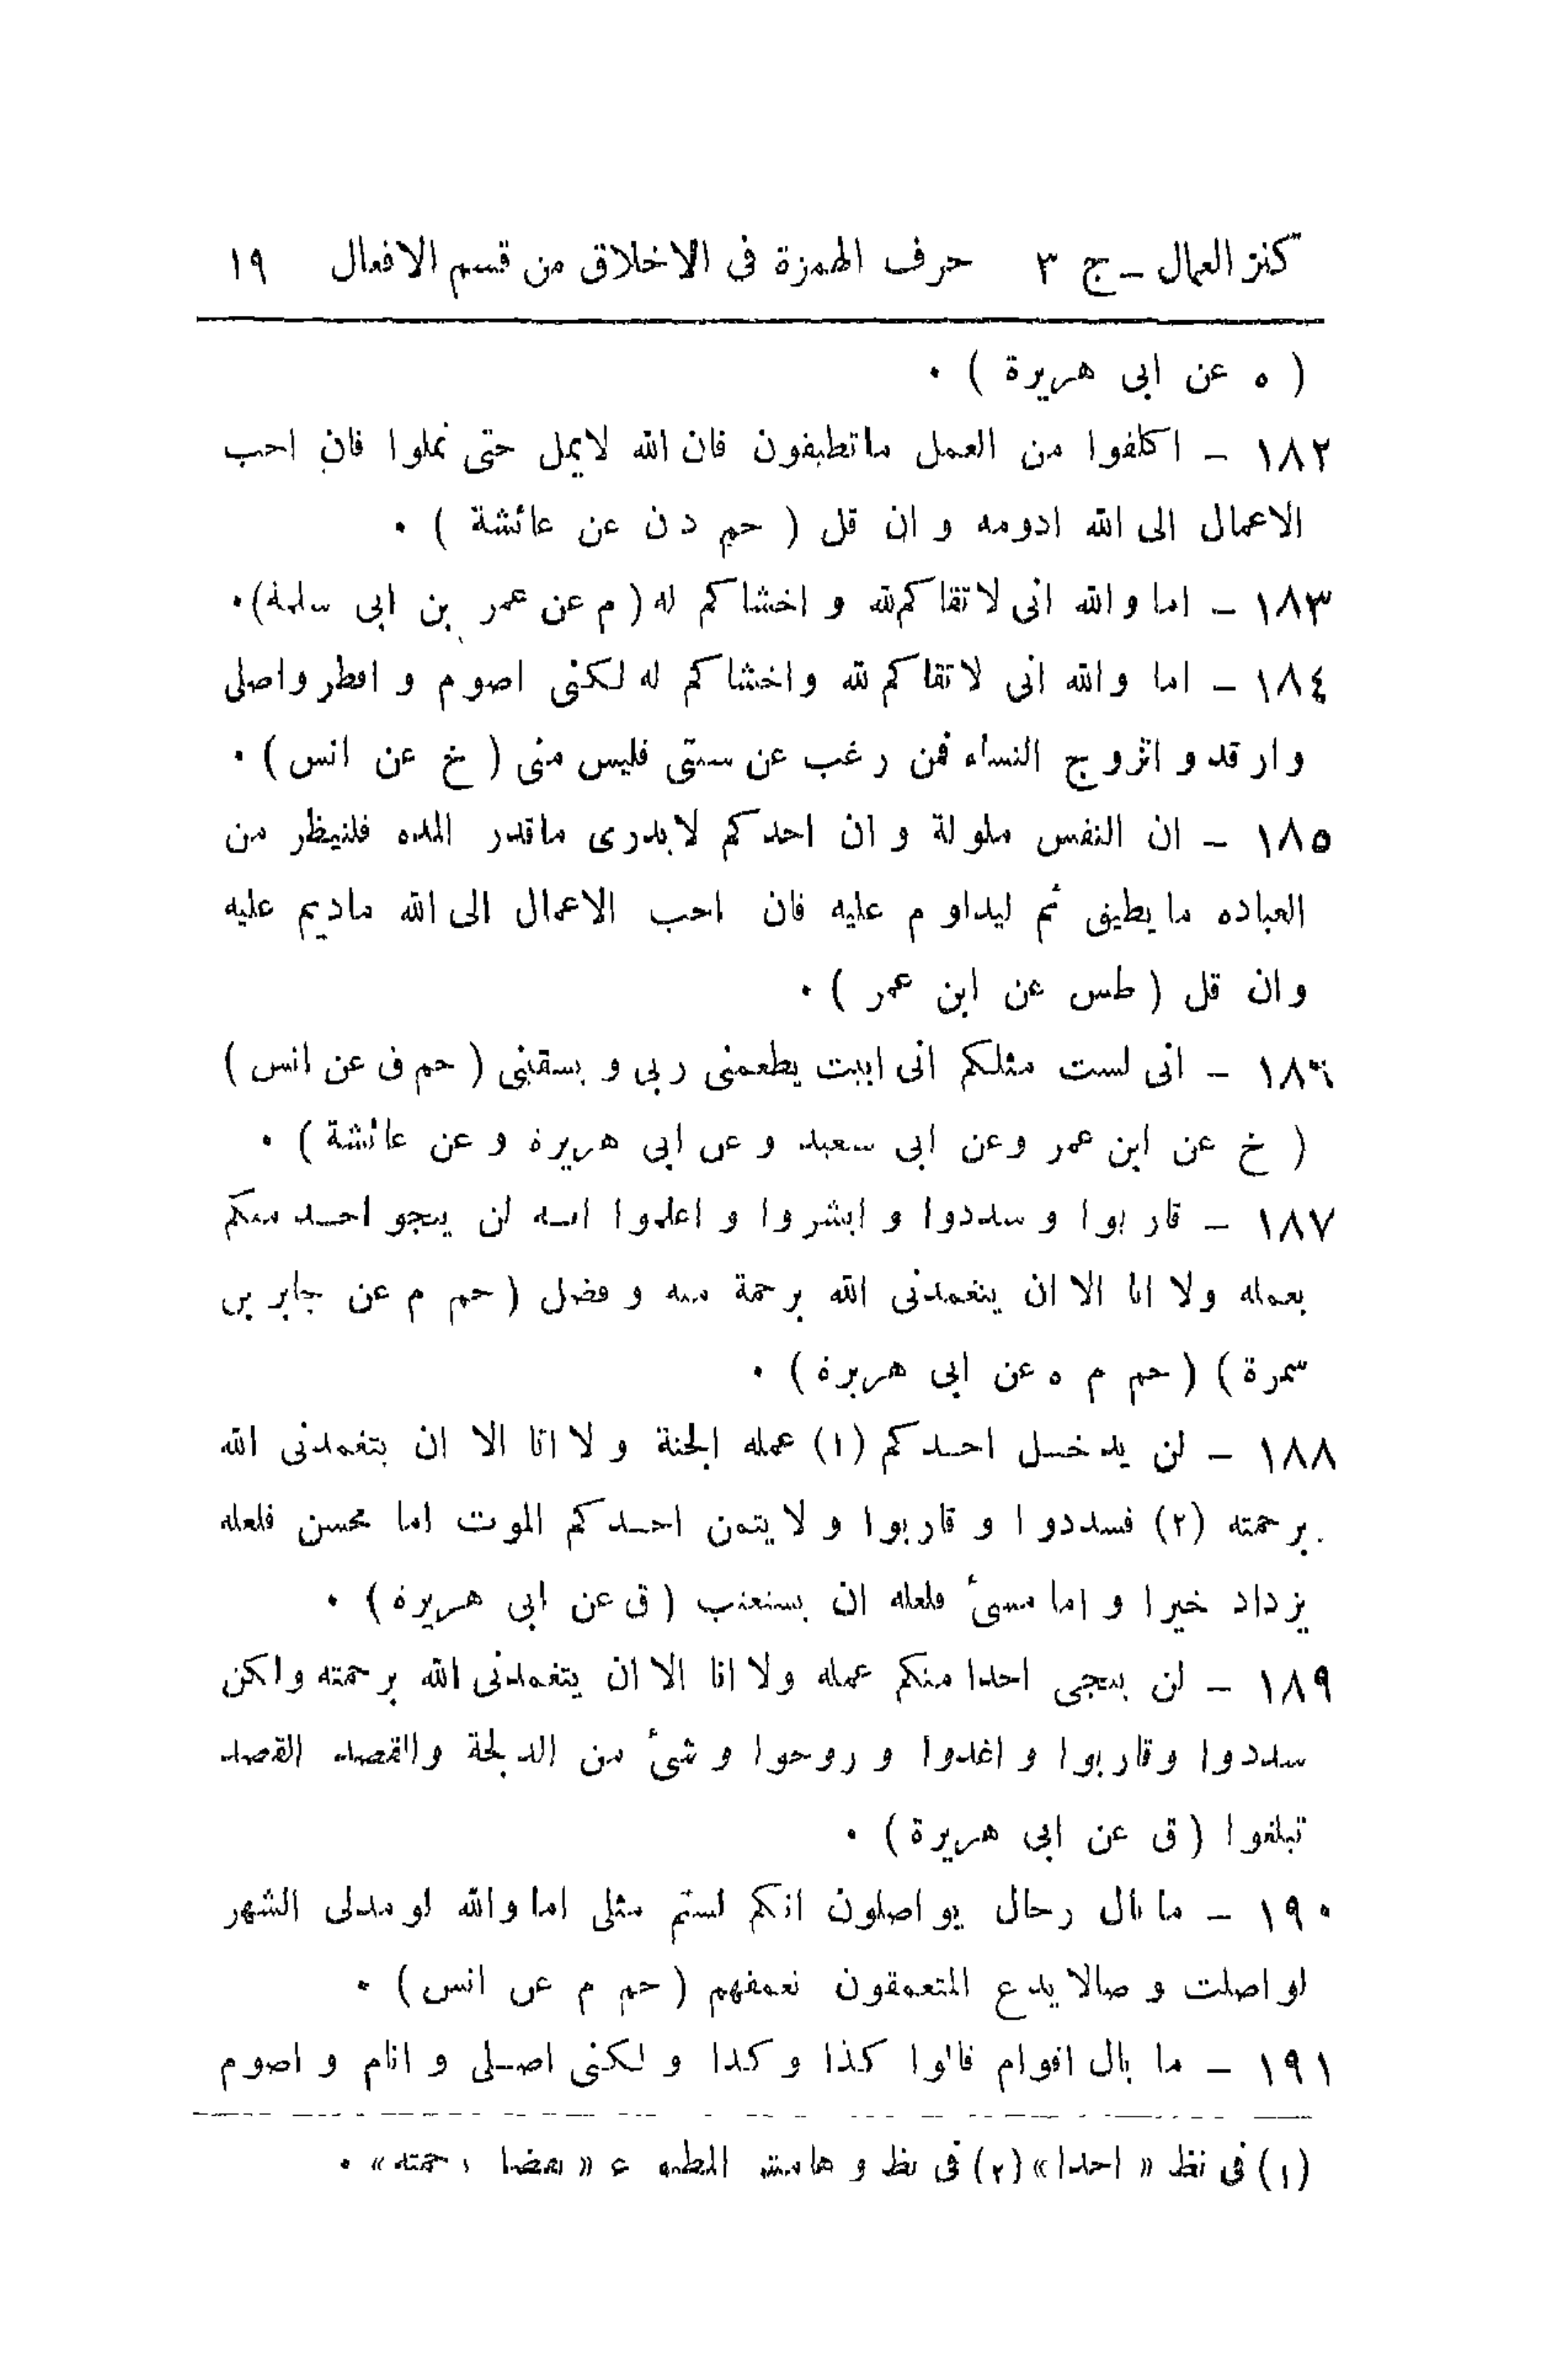 كنز العمال – ج ٣ حرف الهمزة في الاخلاق من قسم الافعال ١٩
( ه عن ابى هريرة ) ٠
١٨٢ – اكلفوا من العمل ماتطيقون فان الله لايمل حتى تملوا فان احب
الاعمال الى الله ادومه و ان قل ( حم د ن عن عائشة ) ٠
١٨٣ – اما و الله انى لاتقاكم لله و اخشاكم له ( م عن عمر بن ابى سلمة) ٠
١٨٤ – اما والله انى لاتقاكم لله واخشاكم له لكنى اصوم و افطر واصلى
وارقد و اتزوج النساء فمن رغب عن سنتى فليس منى ( خ عن انس ) ٠
١٨٥ – ان النفس ملولة و ان احدكم لايدرى ماقدر المده فلينظر من
العباده مايطيق ثم ليداوم عليه فان احب الاعمال الى الله ماديم عليه
وان قل ( طس عن ابن عمر ) ٠
١٨٦ – انى لست مثلكم انى ابيت يطعمنى ربى و يسقينى ( حم ق عن انس )
( خ عن ابن عمر وعن ابى سعيد و عن ابى هريرة و عن عائشة ) ٠
١٨٧ – قاربوا و سددوا و ابشروا و اعلموا انه لن ينجو احد منكم
بعمله ولا انا الا ان يتغمدنى الله برحمة منه و فضل ( حم م عن جابر بن
سمرة ) ( حم م ه عن ابى هريرة ) ٠
١٨٨ – لن يدخل احدكم (١) عمله الجنة و لا انا الا ان يتغمدنى الله
برحمته (٢) فسددوا و قاربوا و لايتمن احدكم الموت اما محسن فلعله
يزداد خيرا و اما مسئ فلعله ان يستعتب ( ق عن ابى هريرة ) ٠
١٨٩ – لن ينجى احدا منكم عمله ولا انا الا ان يتغمدنى الله برحمته ولكن
سددوا وقاربوا و اغدوا و روحوا و شئ من الدلجة والقصد القصد
تبلغوا ( ق عن ابى هريرة ) ٠
١٩٠ – ما بال رجال يواصلون انكم لستم مثلى اما والله لو مدلى الشهر
لواصلت وصالا يدع المتعمقون تعمقهم ( حم م عن انس ) ٠
١٩١ – ما بال اقوام قالوا كذا و كذا و لكنى اصلى و انام و اصوم
(١) فى نظ « احدا» (٢) فى نظ و هامش المطبوع « بفضل رحمته» ٠